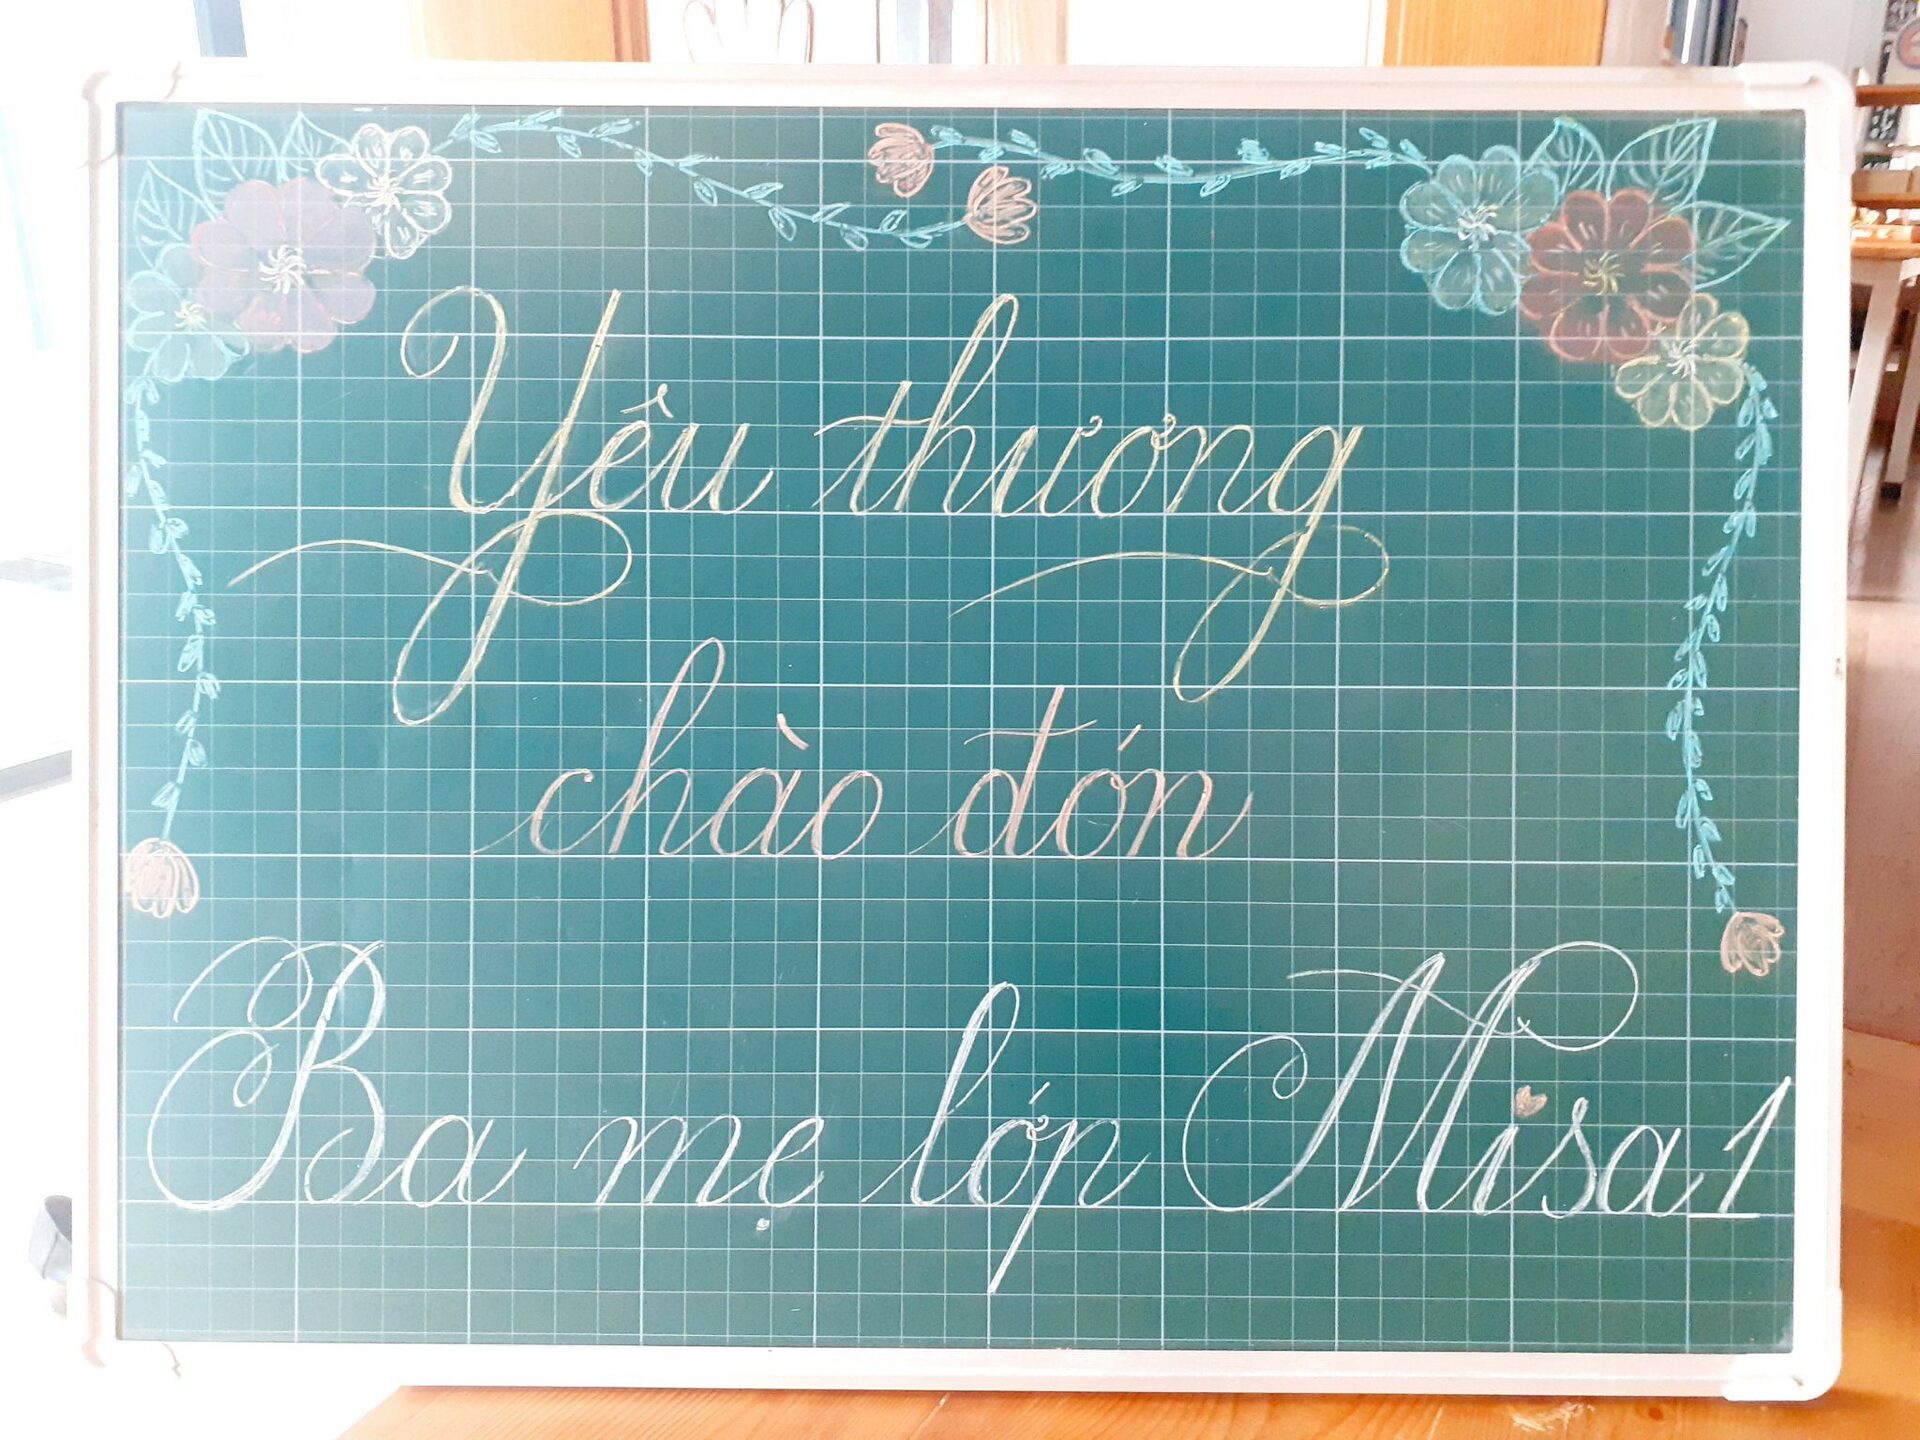 Yêu thương
chào đón
Ba mẹ lớp Misa1